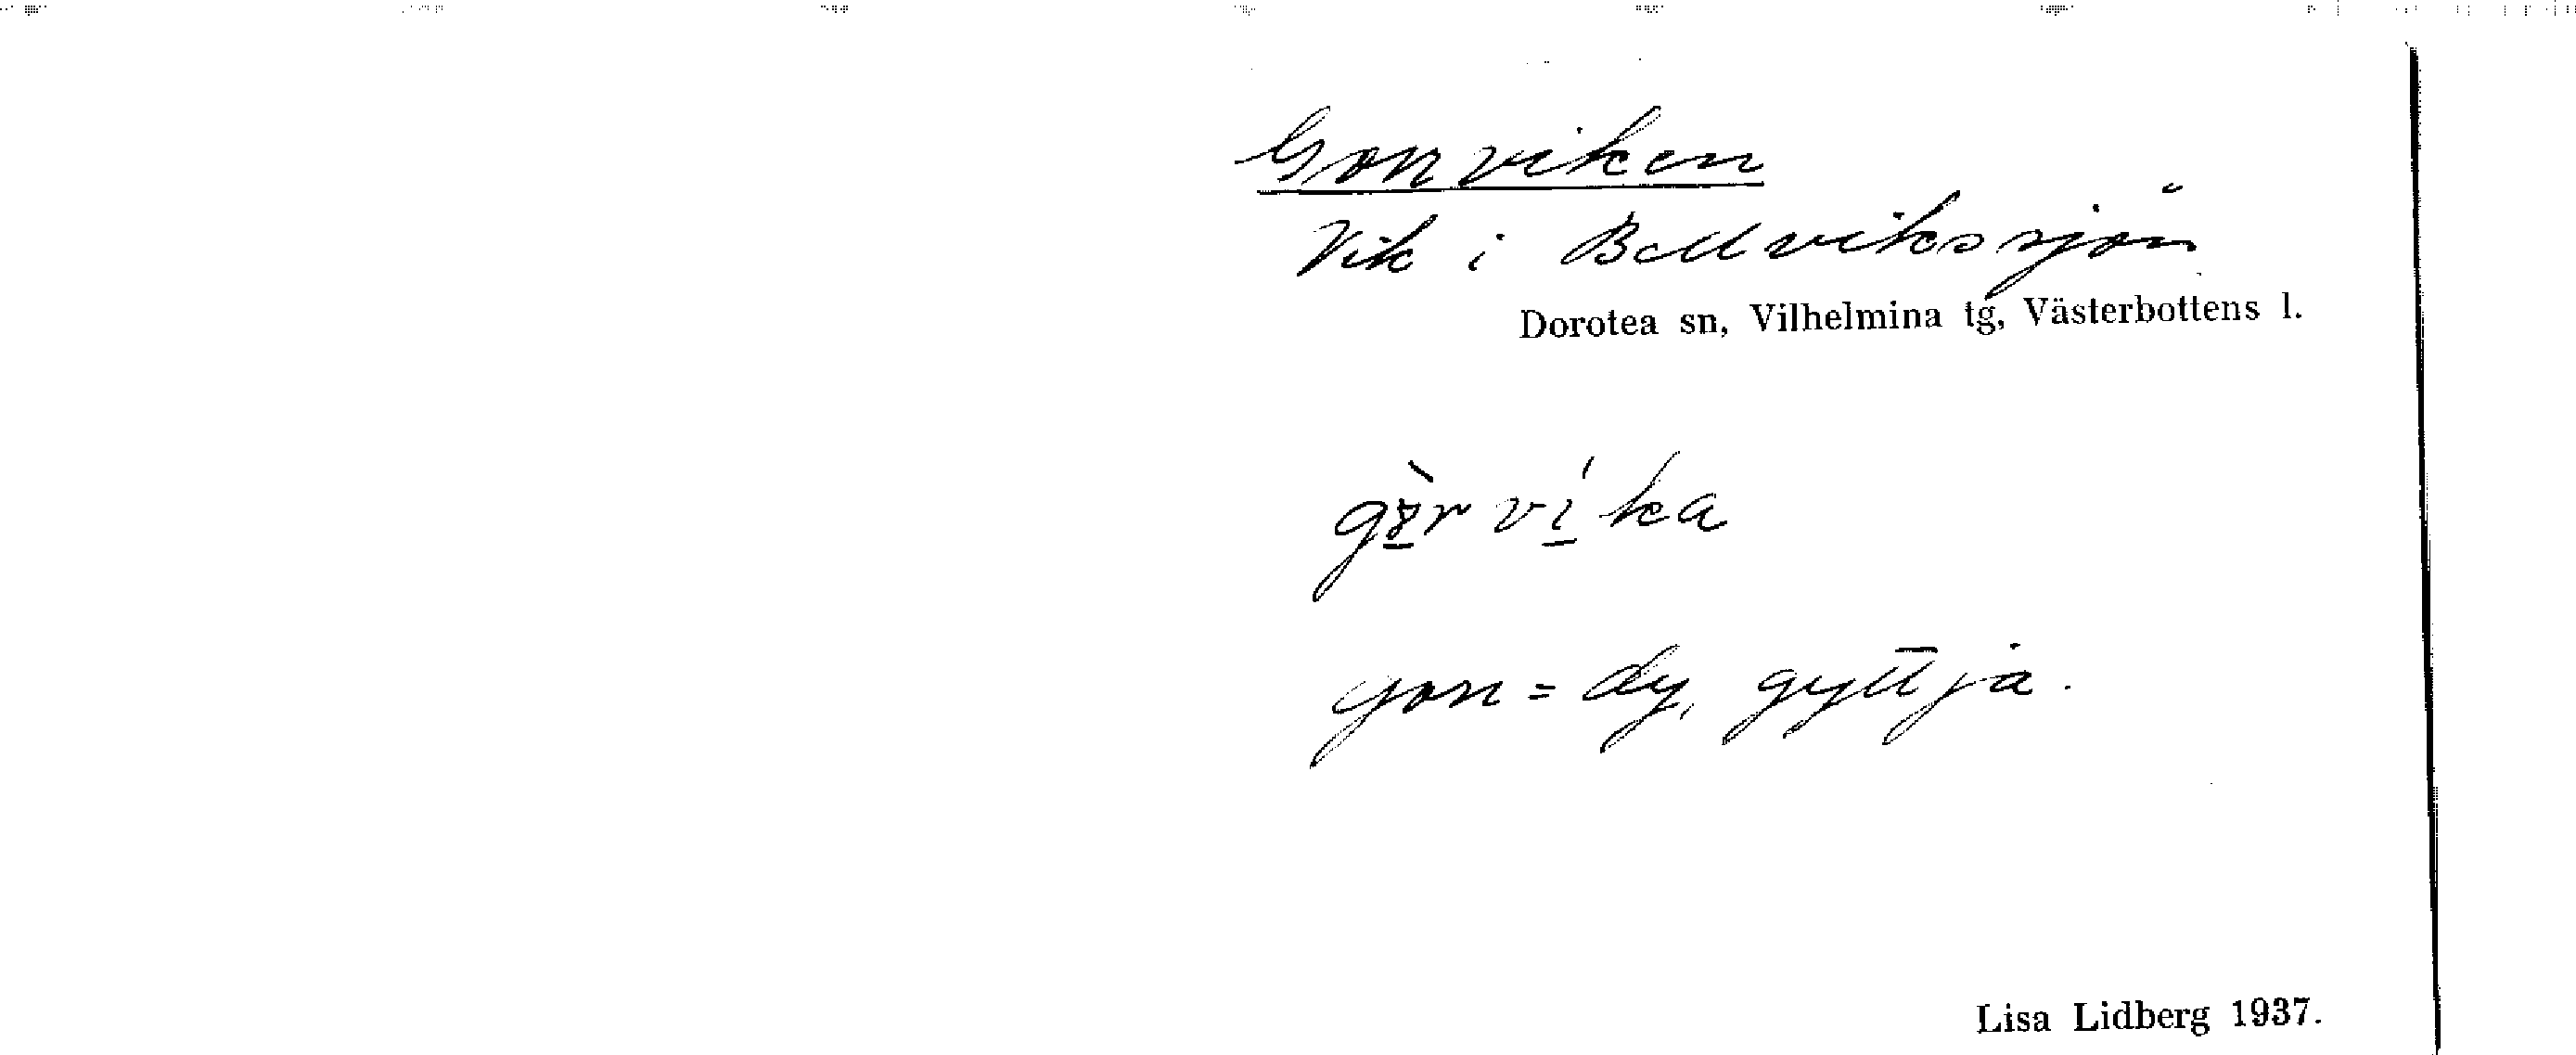 Gorrviken
Vik i Bellvikssjön
Dorotea sn, Vilhelmina tg, Västerbottens l.
gorr = dy, gyttja.
Lisa Lidberg 1937.